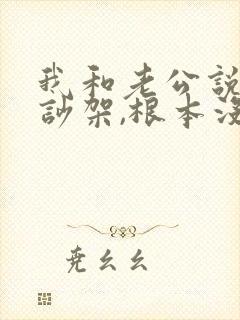 我和老公說
訬架,根本沒
尭幺幺